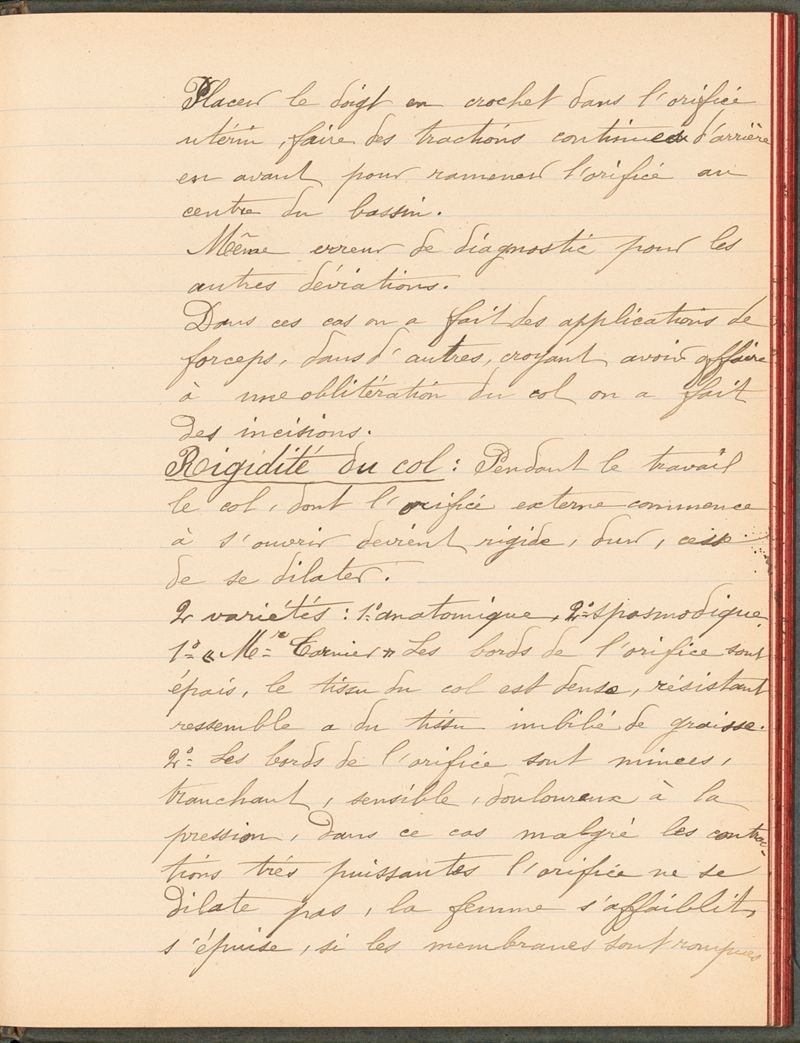 Placer le doigt en crochet dans l'orifice
utérin, faire des tractions continues d'arrière
en avant pour ramener l'orifice au
centre du bassin.
Même erreur de diagnostic pour les
autres déviations.
Dans ces cas on a fait des applications de
forceps, dans d'autres, croyant avoir affaire
à une oblitération du col on a fait
des incisions.
Rigidité du col : Pendant le travail
le col, dont l'orifice externe commence
à s'ouvrir devient rigide, dur, cesse
de se dilater.
2 variétés : 1º anatomique, 2º spasmodique
1º « Mr Tarnier » Les bords de l'orifice sont
épais, le tissu du col est dense, résistant
ressemble a du tissu imbibé de graisse.
2º Les bords de l'orifice sont minces,
tranchant, sensible, douloureux à la
pression, dans ce cas malgré les contrac-
tions très puissantes l'orifice ne se
dilate pas, la femme s'affaiblit,
s'épuise, si les membranes sont rompues